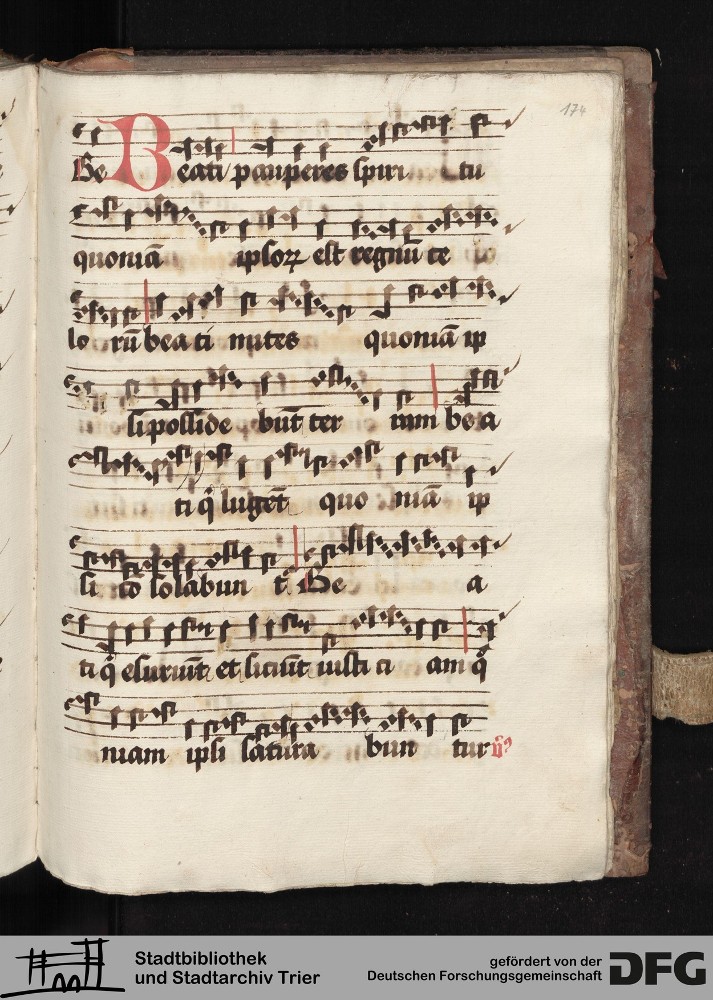 174
Be Beati pauperes spiri tu
quoniā ipsoꝝ est regnū ce lo
lo rū bea ti mites quoniā ip
si posside bunt ter ram bea
ti q̄ lugēt quo niā ip
si cō solabun t̄ Be a
ti q̄ esuriūt et siciūt iusti ci am q̄
niam ipsi satura bun tur
Stadtbibliothek
und Stadtarchiv Trier
gefördert von der
Deutschen Forschungsgemeinschaft
DFG